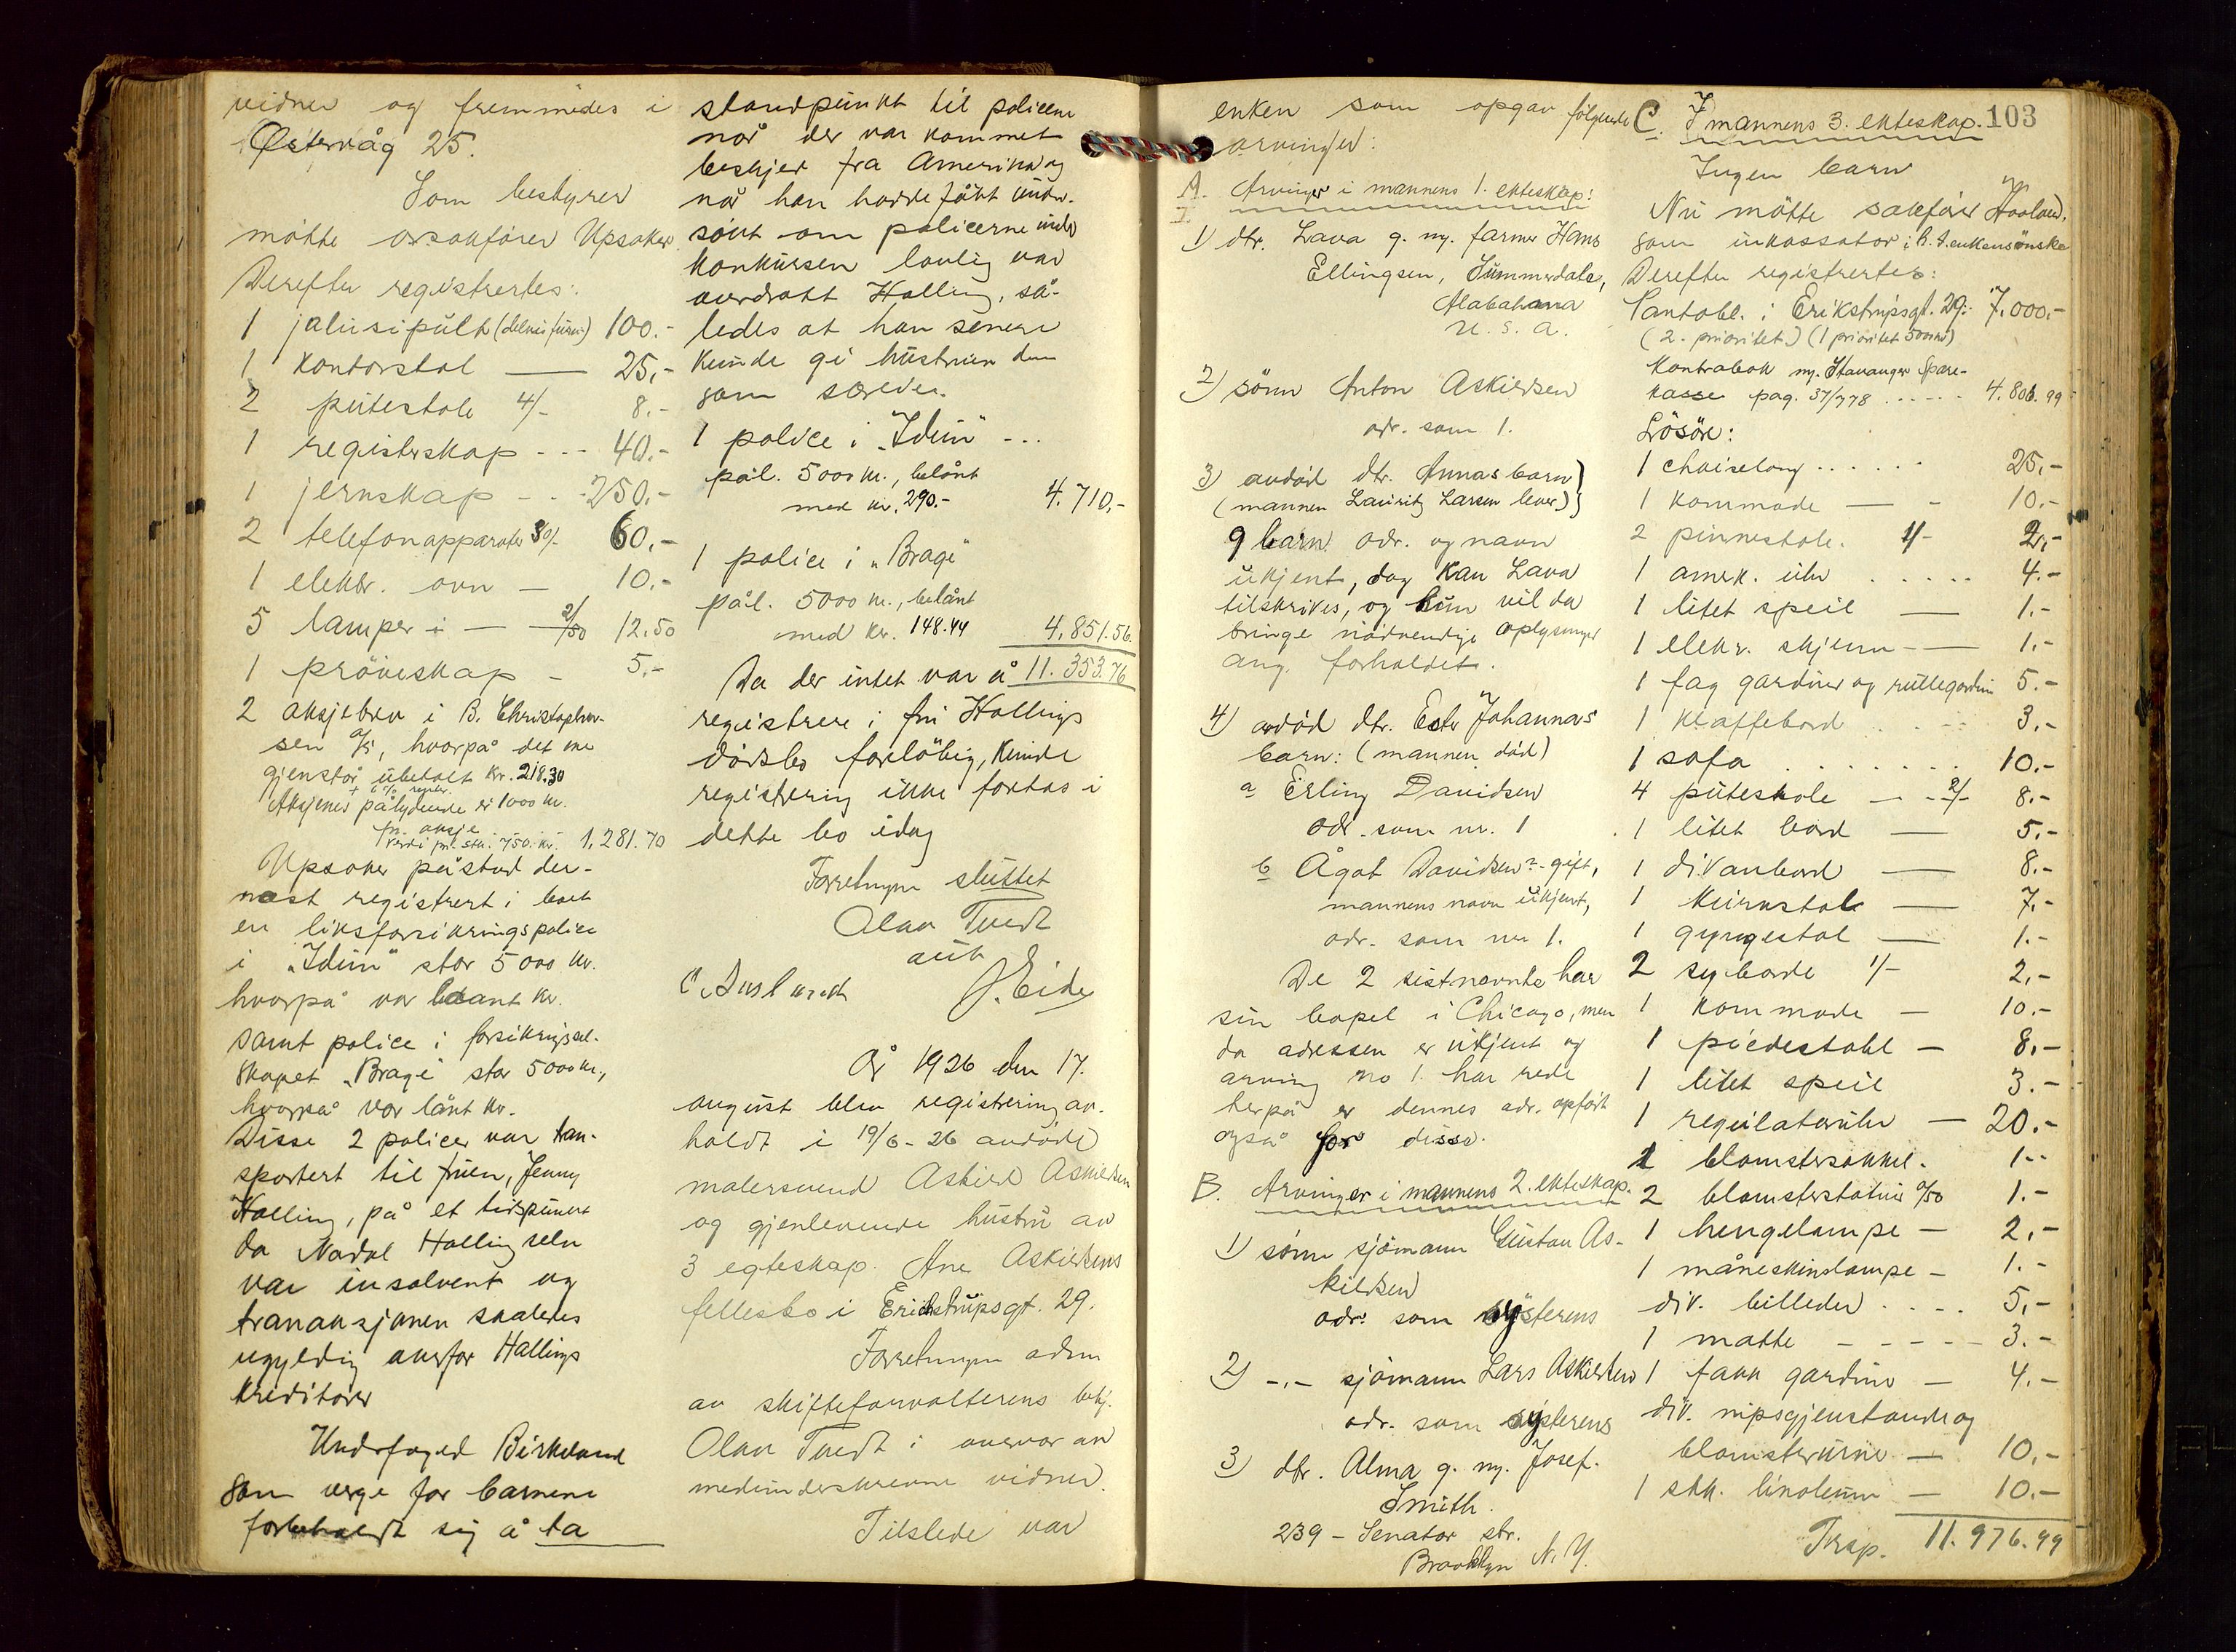 vidner og fremmødes i
Østervåg 25.
Som bestyrer
møtte orsakfører Upsaker
Derefter registrertes:
1 jalusipult 100.-
1 kontorstol — 25,-
2 pütestole 4/- 8.-
1 registerskap - - - 40.-
1 jernskap - - 250.-
2 telefonapparater 30/- 60.-
1 elektr. ovn — 10.-
5 lamper i — 2/50 12.50
1 pröveskap - 5.-
2 aksjebrev i B. Christophersen
A/S, hvorpå det me
gjenstår übetalt kr. 218.30
+ 6% renter.
Aksjenes pålydende er 1000 kr.
pr. aksje
verdi pr. stk. 750.- kr. 1,281.70
Upsaker påstod der-
næst registrert i boet
en livsforsikringspolice
i "Idun" stor 5000 kr.
hvorpå var belaant kr.
samt police i forsikringssel-
skapet "Brage" stor 5000 kr.,
hvorpå var lånt kr.
Disse 2 policer var tran-
sportert til fruen, Jenny
Halling, på et tidspunkt
da Nadal Halling selv
var insolvent og
transaksjonen saaledes
ugyldig overfor Hallings
kreditorer
Underfoged Birkeland
som verge for barnene
forbeholdt sig å ta
standpunkt til policene
når der var kommet
beskjed fra Amerika og
når han hadde fått under-
søkt om policerne under
konkursen lovlig var
overdratt Halling, så-
ledes at han senere
kunde gi hustruen dem
som særeie.
1 police i "Idun" - - .
pål. 5000 kr., belånt
med kr. 290.- 4.710,-
1 police i "Brage"
pål. 5000 kr., belånt
med kr. 148.44 4.851.56.
Da der intet var å 11.353.76
registrere i fru Hallings
dödsbo foreløbig, kunde
registrering ikke foretas i
dette bo idag
Forretningen sluttet
Olav Tvedt
aut
J. Eide
År 1926 den 17.
august blev registrering av-
holdt i 19/6-26 avdøde
malersvend Askild Askildsen
og gjenlevende hustru av
3 egteskap. Ane Askildsens
fellesbo i Erichstrupsgt. 29.
Forretningen adm
av skifteforvalterens bekj.
Olav Tvedt i overvær av
medunderskrevne vidner.
Tilstede var
enken som opgav følgende
arvinger:
A. Arvinger i mannens 1. ekteskap:
1) dtr. Lava g. m. farmer Hans
Ellingsen, Summerdale,
Alabahama
U. S. A.
2) sønn Anton Askildsen
adr. som 1.
3) avdød dtr. Annas barn
(mannen Lauritz Larsen lever)
9 barn adr. og navn
ukjent, dog kan Lava
tilskrives, og hun vil da
bringe nødvendige oplysninger
ang. forholdet.
4) avdød dtr. Ester Johannas
barn: (mannen død)
a Erling Davidsen
adr. som nr. 1
b Ågot Davidsen - gift,
mannens navn ukjent,
adr. som nr 1.
De 2 sistnevnte har
sin bopel i Chicago, men
da adressen er ukjent og
arving no 1. har rede
herpå er dennes adr. opført
også for disse.
B. Arvinger i mannens 2. ekteskap.
1) sønn sjømann Gustav As-
kildsen
adr. som søsterens
2) -.- sjømann Lars Askildsen
adr. som søsterens
3) dtr. Alma g. m. Josef.
Smith.
239 - Senator str.
Brooklyn N. Y.
103
C. I mannens 3. ekteskap.
Ingen barn
Nu møtte sakfører Haaland.
som inkassator i h. t. enkens ønske
Derefter registrertes:
Pantobl. i Erikstrupsgt. 29: 7.000,-
(2. prioritet) (1 prioritet 5000 kr)
Kontrabok m. Stavanger Spare-
kasse pag. 37/778 . . . . . 4.806.99
Lösöre:
1 chaiselong . . . . . . 25,-
1 kommode — - 10.-
2 pinnestole. 1/- 2,-
1 amrk. uhr . . . . . 4.-
1 litet speil — 1.-
1 elekr. skjerm - — 1.-
1 fag gardiner og rullegardin 5.-
1 klaffebord . . 3.-
1 sofa . . . . . . . 10.-
4 pütestole — - 2/- 8.-
1 litet bord — 5.-
1 divanbord — 8.-
1 kurvstol — 7.-
1 gyngestol — 1.-
2 syborde 1/- 2,-
1 kommode — 10.-
1 piedestahl — 8,-
1 litet speil 3.-
1 regulateruhr — 20.-
1 blomstersokkel. 1--
2 blomsterstatuer 0/50 1.-
1 hengelampe — 2,-
1 måneskinslampe — 1.-
div. billeder . . . . 5,-
1 matte - - - - - 3.-
1 favn gardine — 4.-
div. nipsgjenstande og
blomsterurne — 10,-
1 stk. linoleum — 10.-
Trsp. 11.976.99